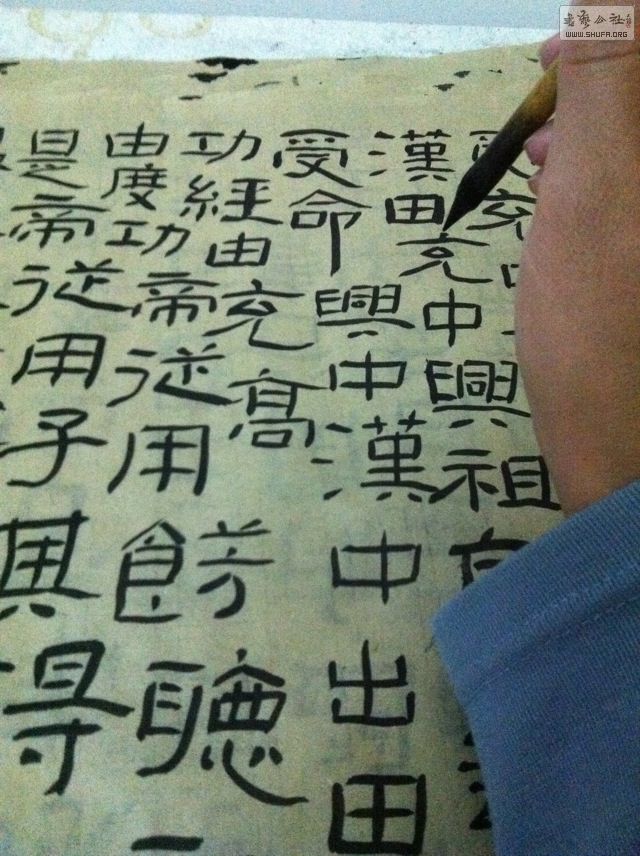 書藝公社
WWW.SHUFA.ORG
受充中
漢田充中興祖
受命興中漢中出田
功經由充高
由度功帝従用餝聽一
是帝従用子其得